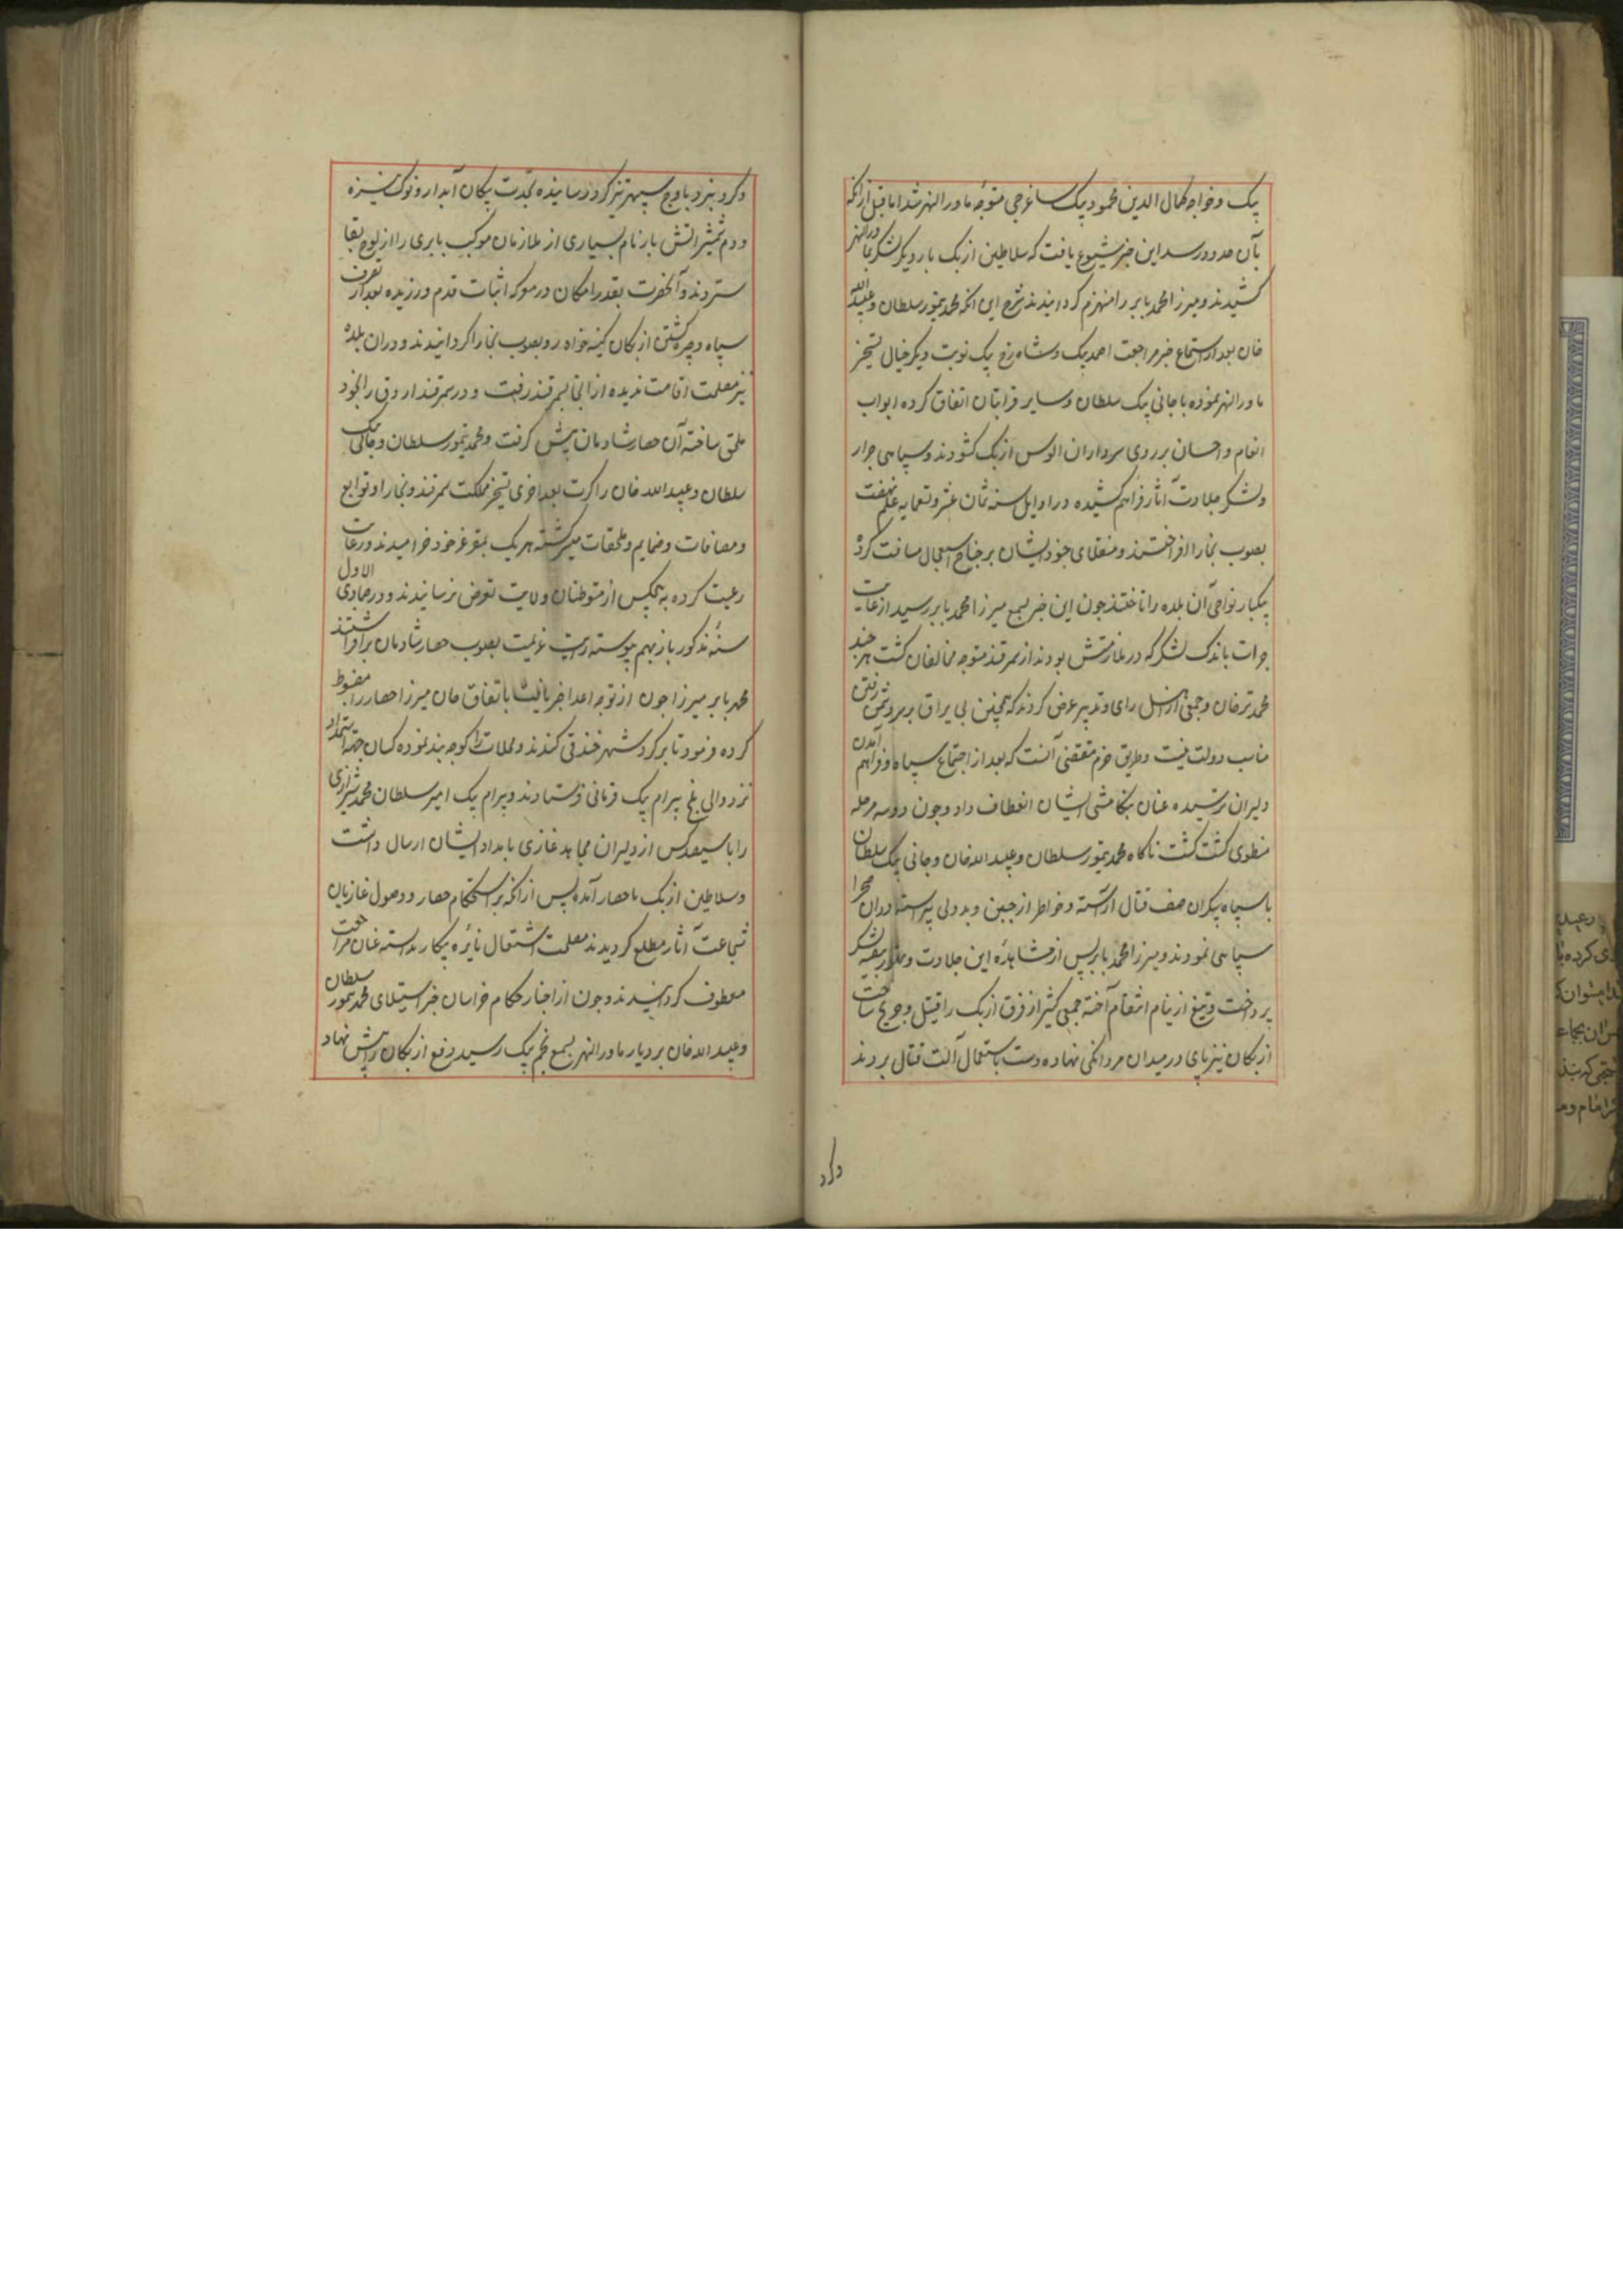 بیک و خواجه کمال الدین محمود بیک ساغرجی متوجه ماورالنهر شد اما قبل از انکه
بآن حدود رسد این خبر شیوع یافت که سلاطین ازبک بار دیکر لشکر بماورالنهر
کشیدند و میرزا محمد بابر را منهزم کردانیدند شرح این انکه محمد تیمور سلطان و عبیدالله
خان بعد از استماع خبر مراجعت احمد بیک و شاه رخ بیک نوبت دیکر خیال تسخیر
ماورالنهر نموده با جانی بیک سلطان و سایر قرابتان اتفاق کرده ابواب
انعام و احسان بر روی سرداران الوس ازبک کشودند و سپاهی جرار
و لشکر جلادت آثار فراهم کشیده در اوایل سنه ثمان عشر و تسعمایه علم نهضت
بصوب بخارا افراختند و منقلای جنود ایشان بر جناح استعجال مسافت کرده
بیکبار نواحی آن بلده را تاختند چون این خبر بسمع میرزا محمد بابر رسید از غایت
جرات باندک لشکر که در ملازمتش بودند از سمرقند متوجه مخالفان کشت هر چند
محمد ترخان و جمعی از اهل رای و تدبیر عرض کردند که همچنین بی یراق بر سر دشمن رفتن
مناسب دولت نیست و طریق حزم مقتضی آنست که بعد از اجتماع سپاه و فراهم آمدن
دلیران نرسیده عنان بکامشی ایشان انعطاف داد و چون دو سه مرحله
منطوی کشت کشت ناکاه محمد تیمور سلطان و عبید الله خان و جانی بیک سلطان
با سپاه بیکران صف قتال آراسته و خواطر از جبن و بددلی پیراسته در ان صحرا
سپاهی نمودند و میرزا محمد بابر پس از مشاهده این جلادت و تهور بتعبیه لشکر
پرداخت و تیغ از نیام انتقام آخته جمعی کثیر از فرق ازبک را قتیل و جریح ساخت
ازبکان نیز پای در میدان مردانکی نهاده دست باستعمال آلت قتال بردند
وکرد
وکرد نبرد باوج سپهر تیز کرد رسانیده بحدت پیکان آبدار و نوک نیزه
و دم شمشیر اتش بار نام بسیاری از ملازمان موکب بابری را از لوح بقا
ستردند و آنحضرت بقدر امکان در معرکه اثبات قدم ورزیده بعد از تفرق
سپاه و چیره کشتن ازبکان کینه خواه رو بصوب بخارا کردانیدند و دران بلده
نیز مصلحت اقامت ندیده از انجا بسمرقند رفت و در سمرقند اروق را بخود
ملحق ساخته آن حصار شادمان پیش کرفت و محمد تیمور سلطان و جانی بیک
سلطان و عبید الله خان را کرت بعد اخری تسخیر مملکت سمرقند و بخارا و توابع
و مضافات و ضمایم و ملحقات میسر کشته هر یک بمقر عز خود خرامیدند و رعایت
رعیت کرده بهیچکس از متوطنان ولایت تعرض نرسانیدند و در جمادی الاول
سنه مذکور باز بهم پیوسته رایت عزیمت بصوب حصار شادمان برافراشتند
محمد بابر میرزا چون از توجه اعدا خبر یافت باتفاق خان میرزا حصار را مضبوط
کرده فرمود تا بر کرد شهر خندقی کندند و محلات را کوچه بند نموده کسان جهة استمداد
نزد والی بلخ بیرام بیک قرمانی فرستادند و بیرام بیک امیر سلطان محمد شیرازی
را با سیصد کس از دلیران مجاهد غازی بامداد ایشان ارسال داشت
و سلاطین ازبک تا حصار آمده پس از انکه بر استحکام حصار و وصول غازیان
شجاعت آثار مطلع کردیدند مصلحت اشتعال نایره پیکار ندانسته عنان مراجعت
معطوف کردانیدند و چون از اخبار حکام خراسان خبر استیلای محمد تیمور سلطان
و عبید الله خان بر دیار ماورالنهر بسمع نجم بیک رسید دفع ازبکان را پیش نهاد